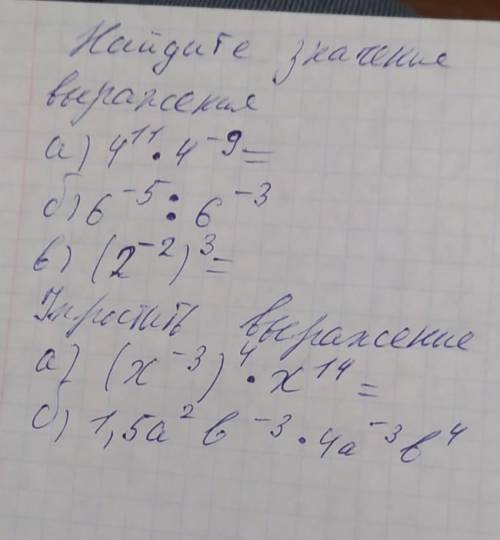 Найдите значение
выражения
а) 4¹¹ · 4⁻⁹ =
б) 6⁻⁵ : 6⁻³
в) (2⁻²)³ =
Упростить выражение
а) (x⁻³)⁴ · x¹⁴ =
б) 1,5a²b⁻³ · 4a⁻³b⁴